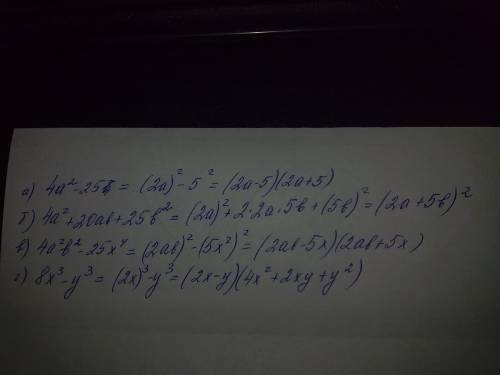 а) 4a² - 25 = (2a)² - 5² = (2a-5)(2a+5)
б) 4a² + 20ab + 25b² = (2a)² + 2·2a·5b + (5b)² = (2a + 5b)²
в) 4a²b² - 25x⁴ = (2ab)² - (5x²)² = (2ab - 5x)(2ab + 5x)
г) 8x³ - y³ = (2x)³ - y³ = (2x - y)(4x² + 2xy + y²)